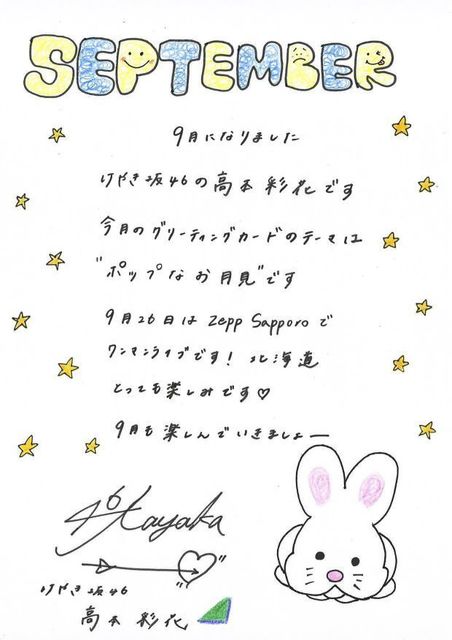 SEPTEMBER
9月になりました
けやき坂46の高本彩花です
今月のグリーティングカードのテーマは
"ポップなお月見"です
9月26日は Zepp Sapporoで
ワンマンライブです! 北海道
とっても楽しみです♡
9月も楽しんでいきましょー
けやき坂46
高本彩花